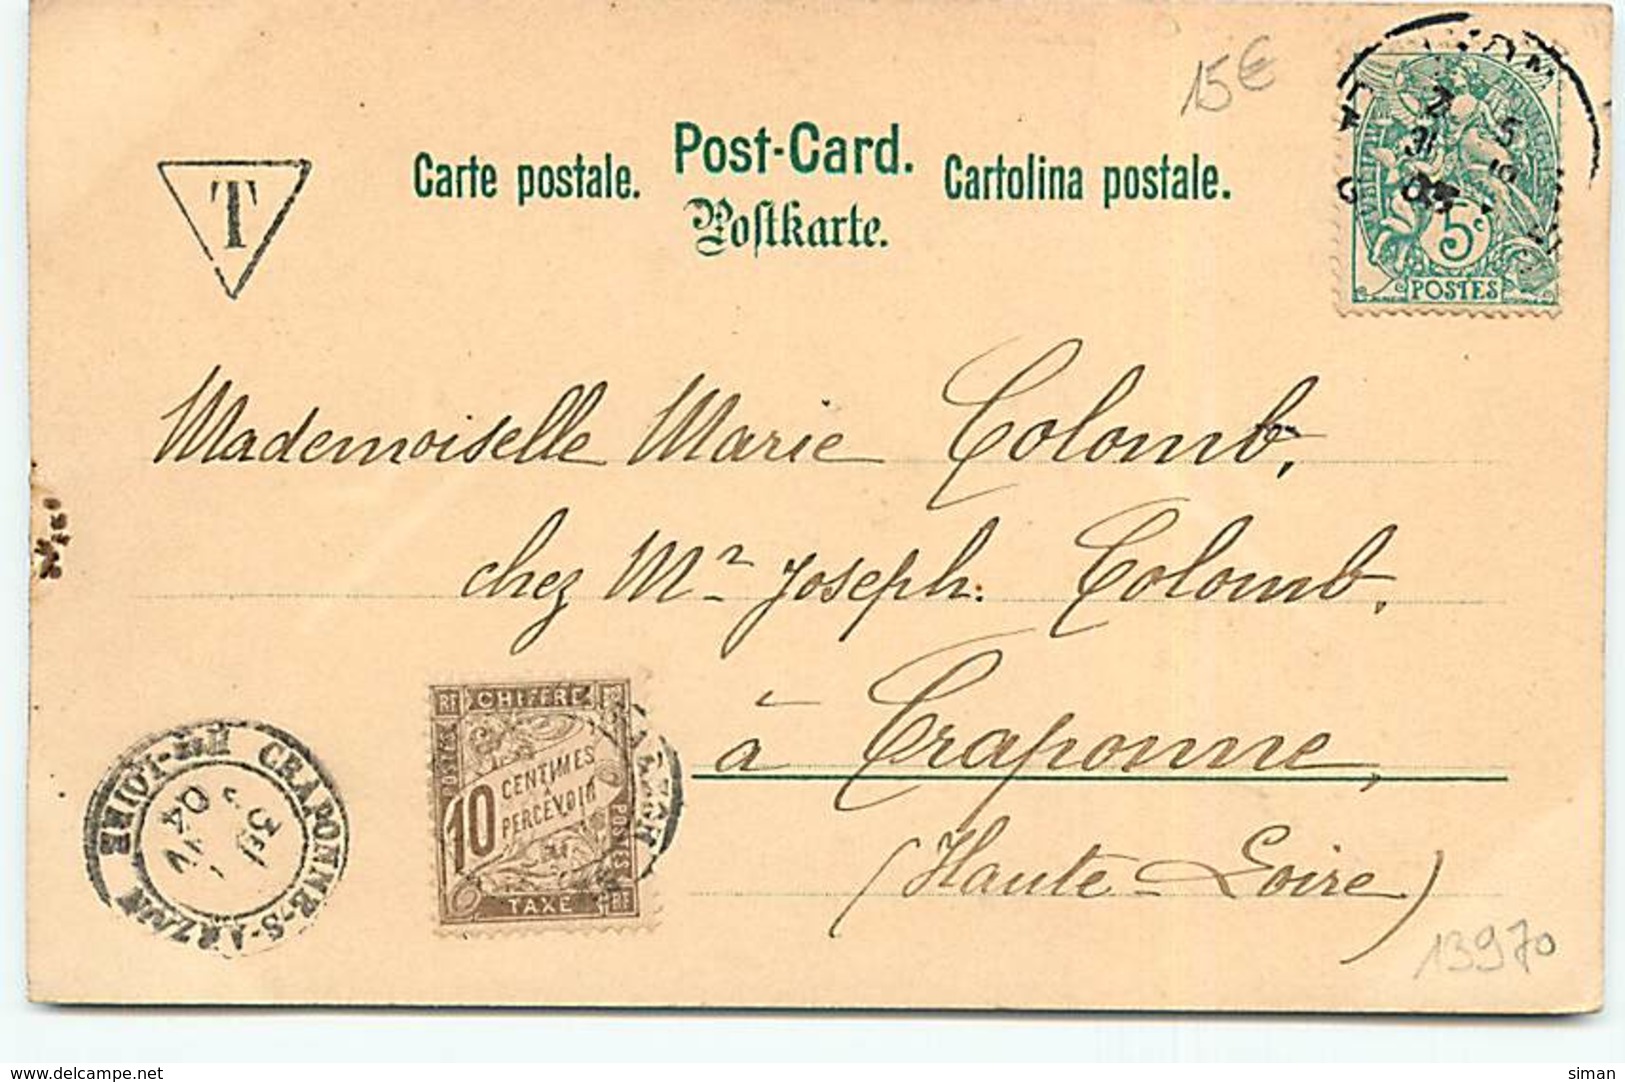 15€
Carte postale. Post-Card. Cartolina postale.
Postkarte.
T
5c
POSTES
Mademoiselle Marie Colomb,
chez Mr Joseph Colomb,
à Craponne,
(Haute-Loire)
RF CHIFFRE
POSTES
10 CENTIMES
À
PERCEVOIR
POSTES
TAXE RF
CRAPONNE-S-ARZON
HTE-LOIRE
04
13970
delcampe.net
siman